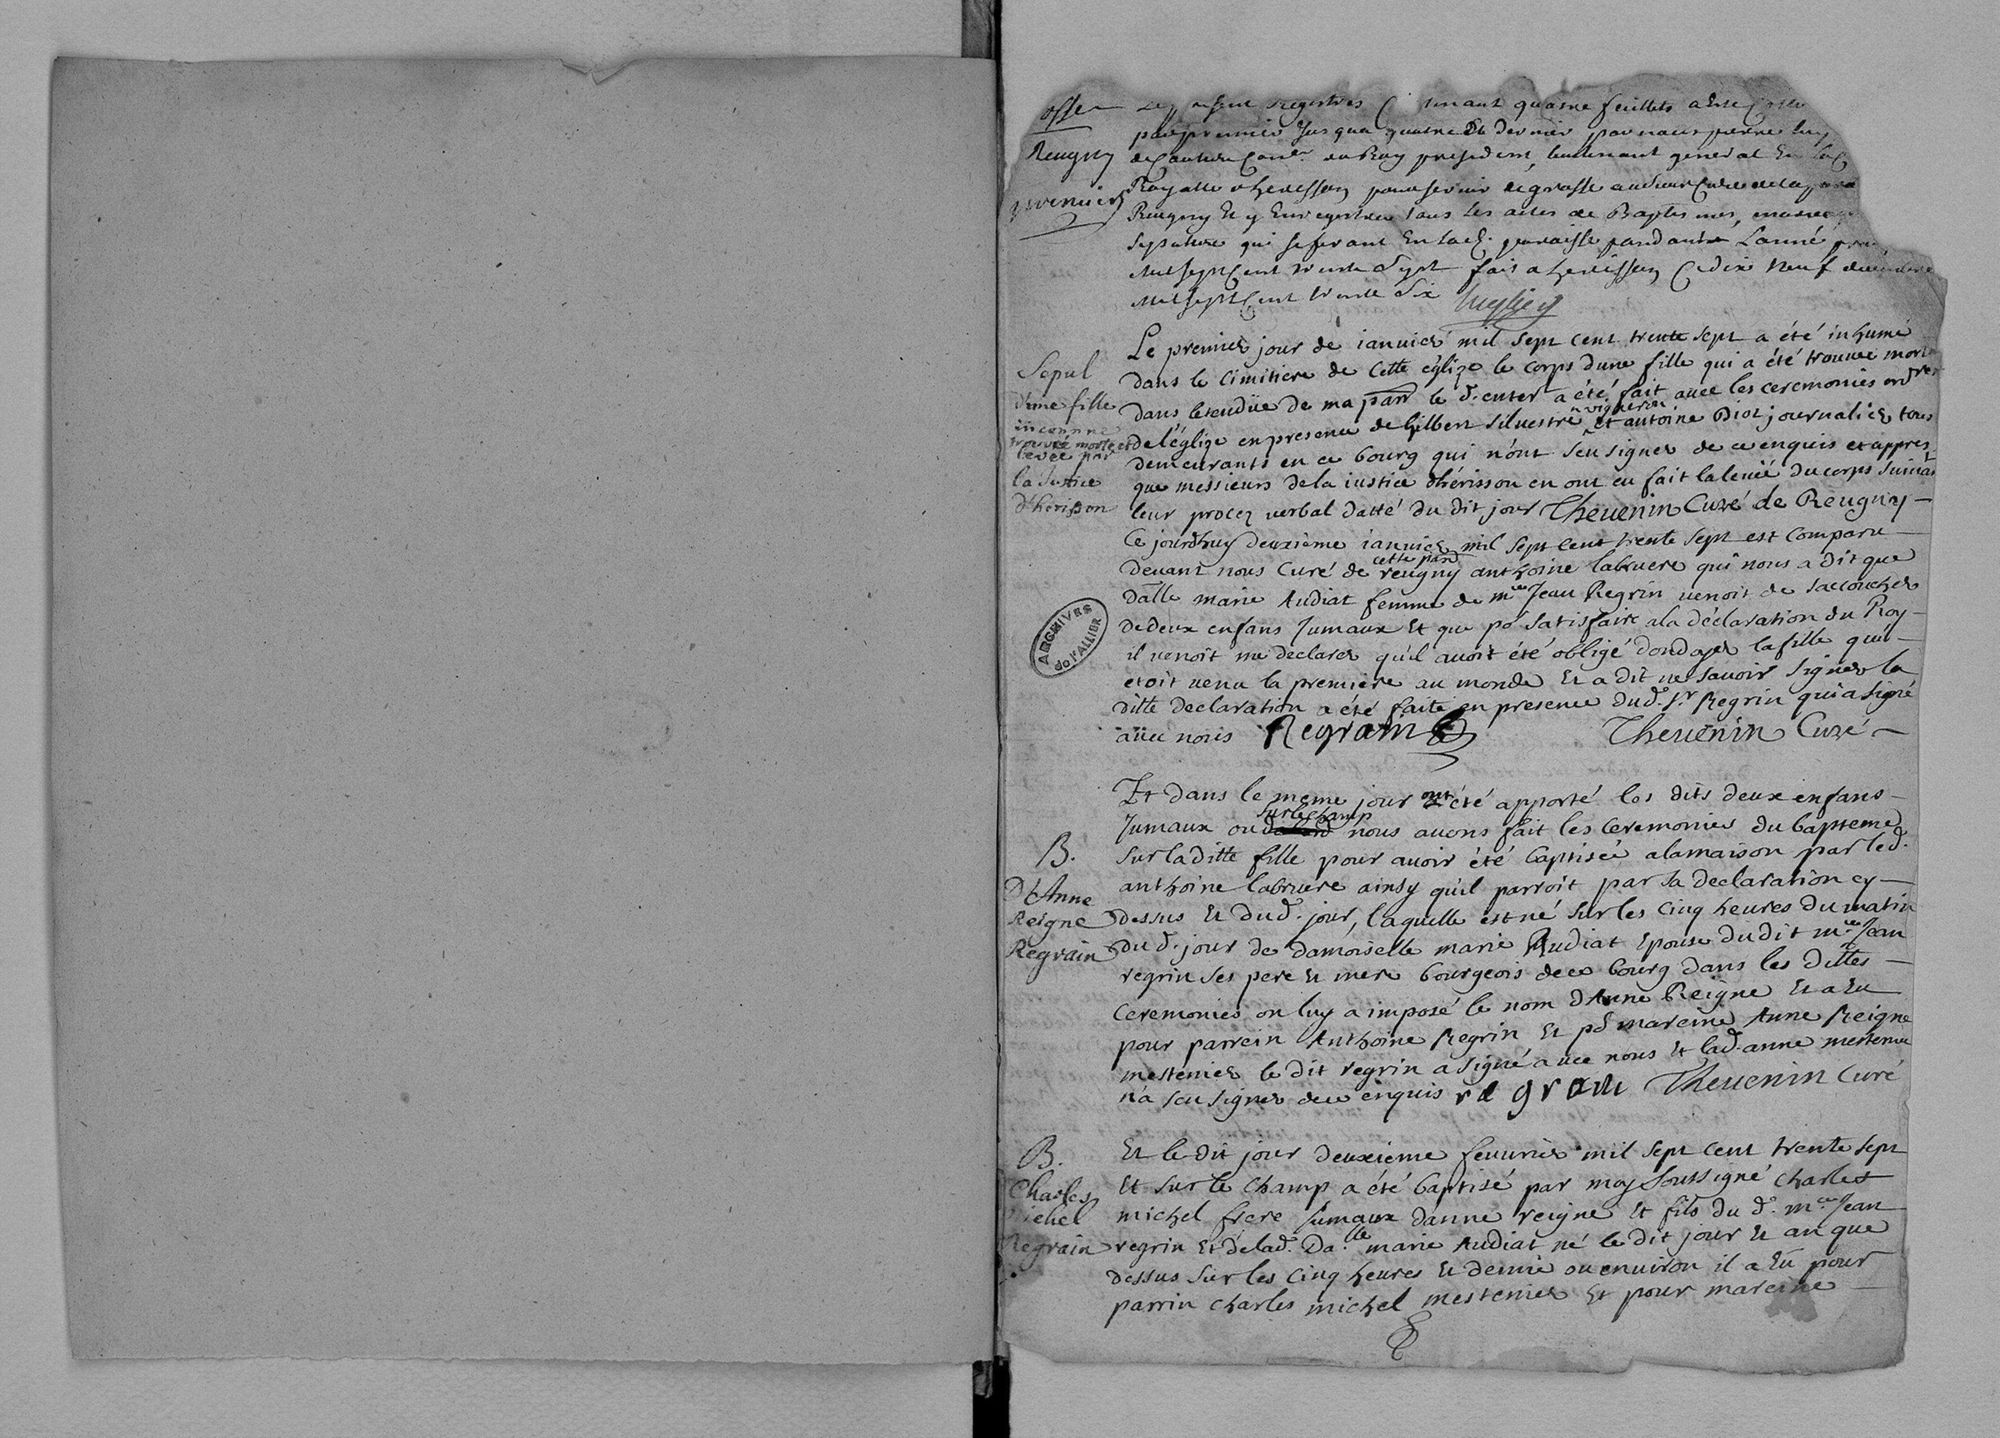 Reugny
registres quatre feuillets a este
par premier Jusqua quatre Et dernier par nous pierre
du Roy president, lieutenant general En la
Royalle d'herisson pour servir de grosse au sieur Curé de la
Reugny Et y Enregistrer tous les actes de Baptesmes,
sepulture qui se feront En lad. paroisse pandant Lanné
Mil sept Cent trente Sept fait a herisson Ce dix Neuf
Mil sept Cent trente Six
Sepul
d'une fille
inconnue
trouvée morte et
levée par
la Justice
D'herisson
Le premier jour de ianvier mil sept cent trente sept a été inhumé
dans le cimitiere de cette église le corps dune fille qui a été trouvée morte
dans letendüe de ma parr le d. enter a été fait avec les ceremonies ordres
de l'église en presence de Gilbert Silvestre vigneron et antoine Diot journalier tous
demeurants en ce bourg qui n'ont sçu signer de ce enquis et appres
que messieurs de la iustice dhérisson en ont eu fait la levée du corps suivat
leur procez verbal datté du dit jour Thevenin Curé de Reugny
Ce jourdhuy deuxième ianvier mil sept cent trente sept est comparu
devant nous Curé de cette parr reugny anthoine labruere qui nous a dit que
dalle marie Audiat femme de me Jean Regrin venoit de saccoucher
de deux enfans Jumaux Et que pr satisfaire a la déclaration du Roy
il venoit me declarer qu'il avoit été obligé dondoyer la fille qui
etoit venu la première au monde Et a dit ne savoir signer la
ditte declaration a été faite en presence dud. Sr Regrin qui a signé
avec nous Regrain Thevenin Curé
ARCHIVES
de l'ALLIER
B.
D'Anne
Reigne
Regrain
Et dans le meme jour ont été apporté les dits deux enfans
Jumaux ou sur le champ nous avons fait les ceremonies du bapteme
sur la ditte fille pour avoir été baptisée a la maison par led.
anthoine labruere ainsy qu'il parroit par sa declaration cy
dessus Et dud. jour, laquelle est né sur les cinq heures du matin
du d. jour de damoiselle marie Audiat Epouse du dit me Jean
regrin ses pere Et mere bourgeois de ce bourg dans les dittes
ceremonies on luy a imposé le nom d'Anne Reigne Et a Eu
pour parrein Anthoine Regrin Et pr mareine Anne Reigne
mestenier le dit regrin a signé avec nous Et lad. anne mestenier
n'a sçu signer de ce enquis regrain Thevenin Curé
B.
Charles
Michel
Regrain
Et le dit jour deuxieme fevvrier mil sept cent trente sept
Et sur le champ a été baptisé par moy soussigné charles
michel frere Jumaux d'anne reigne Et fils du d. me Jean
regrin Et de lad. Dalle marie Audiat né le dit jour Et an que
dessus sur les cinq heures Et demie ou environ il a Eü pour
parrin charles michel mestenier Et pour mareine